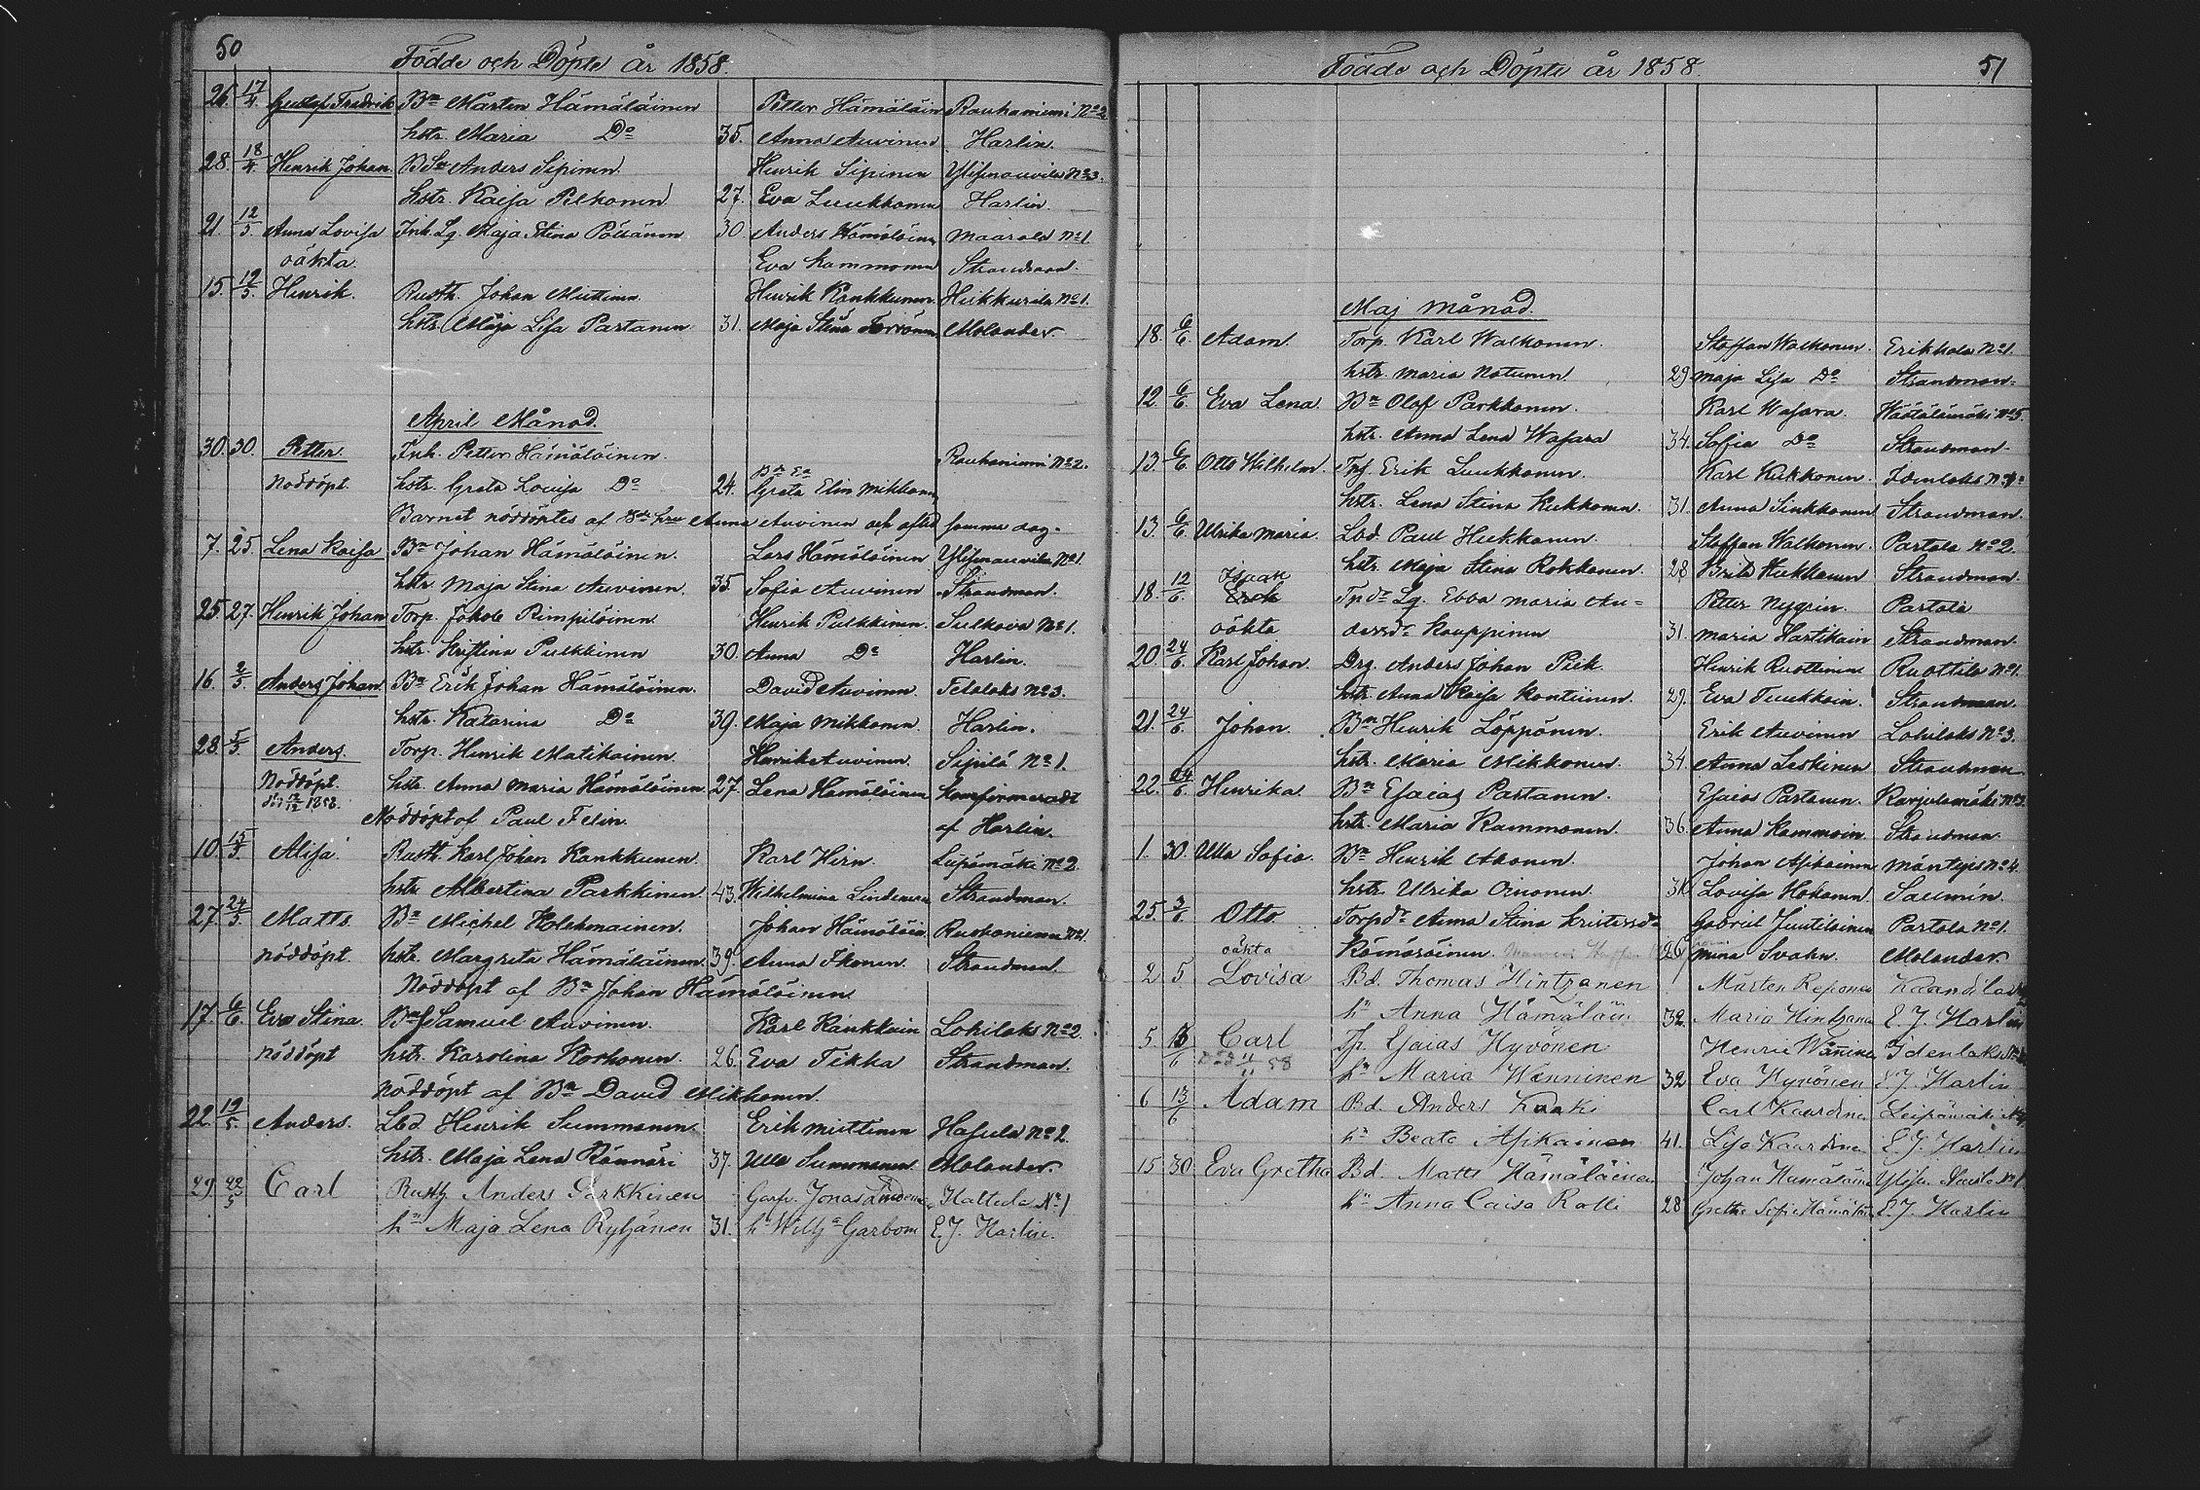 50
Födde och Döpte år 1858.
26. 17/4 Gustaf Fredrik Bn Mårten Hämäläinen Petter Hämäläin Rauhaniemi No 2
hstr. Maria Do 35. Anna Auvinen Harlin.
28. 18/4 Henrik Johan Anders Sipinen Henrik Sipinen No 3.
hstr. Kaisa Pelkonen 27. Eva Luukkonen Harlin.
21. 12/5 Anna Lovisa Inh. Lg. Maja Stina Pöllänen 30. Anders Hämäläinen Maarala No 1
oäkta. Eva Kammonen Strandman.
15. 12/5. Henrik. Rusth. Johan Miettinen Henrik Kankkunen Heikkurila No 1.
hstr. Maja Lisa Partanen 31. Maja Stina Torvonen Molander.
April Månad.
30. 30. Petter. Inh. Petter Hämäläinen. Rauhaniemi No 2.
Nöddöpt. hstr. Greta Lovisa Do 24. Greta Elin Mikkonen
Barnet nöddöptes af Anna Auvinen och afled samma dag.
7. 25. Lena Kaisa Bn Johan Hämäläinen. Lars Hämäläinen No 1.
hstr. Maja Stina Auvinen. 35. Sofia Auvinen Strandman.
25. 27. Henrik Johan Torp. Jakob Rimpiläinen Henrik Pulkkinen. Sulkava No 1.
hstr. Kristina Pulkkinen 30. Anna Do Harlin.
16. 2/5. Anders Johan Bn Erik Johan Hämäläinen. David Auvinen. No 3.
hstr. Katarina Do 39. Maja Mikkonen. Harlin.
28. 5/5 Anders. Torp. Henrik Matikainen. Henrik Auvinen. Sipilä No 1.
Nöddöpt. hstr. Anna Maria Hämäläinen 27. Lena Hämäläinen Konfirmeradt
Nöddöpt af Paul Felin. af Harlin.
10. 15/5. Alisa. Rusth. Karl Johan Kankkunen. Karl Hirn. No 2.
hstr. Albertina Parkkinen. 43. Wilhelmina Lindeman Strandman.
27. 24/5. Matts. Bn Michel Holekmainen. Johan Hämäläin No 1.
nöddöpt. hstr. Margreta Hämäläinen. 39. Anna Ikonen. Strandman.
Nöddöpt af Bn Johan Hämäläinen
17. 6/6. Eva Stina. Samuel Auvinen. Karl Kankkain Lohilaks No 2.
nöddöpt hstr. Karolina Korhonen. 26. Eva Tikka Strandman.
nöddöpt af Bn David Mikkonen.
22. 19/5. Anders. Lbd Henrik Summanen. Erik Miettinen Hasula No 2.
hstr. Maja Lena Rönnäri 37. Ulla Summanen Molander.
29. 22/5 Carl Rusth Anders Parkkinen Garfv. Jonas No 1
hn Maja Lena Rytjänen 31. hn Garbom E. J. Harlin.
Födde och Döpte år 1858.
51
Maj Månad.
18. 6/6. Adam. Torp. Karl Walkonen. Staffan Walkonen. Erikkala No 1.
hstr. Maria Natunen. 29. Maja Lisa Do Strandman.
12. 6/6. Eva Lena. Bn Olof Parkkonen. Karl Wasara. No 5.
hstr. Anna Lena Wasara 34. Sofia Do Strandman.
13. 6/6. Otto Wilhelm. Erik Luukkonen. Karl Kukkonen.
hstr. Lena Stina Kukkonen. 31. Anna Sinkkonen Strandman.
13. 6/6. Ulrika Maria. Lbd. Paul Heikkonen. Staffan Walkonen. Partala No 2.
hstr. Maja Stina Rokkonen. 28 Brita Strandman.
Isaak
18. 12/6. Erik Tpdr Lg. Ebba Maria An= Petter Nygrén. Partala
oäkta dersdr Kauppinen 31. Maria Hartikain Strandman.
20. 24/6. Karl Johan. Drg. Anders Johan Piik. Henrik Ruottinen Ruottila No 1.
hstr. Anna Kaisa Kontinen. 29. Eva Tuukkain. Strandman.
21. 24/6. Johan. Bn Henrik Löppönen. Erik Auvinen Lohilaks No 3.
hstr. Maria Mikkonen. 34. Anna Leskinen Strandman
22. 24/6. Henrika. Bn Esaias Partanen. Esaias Partanen. Karjulamäki
hstr. Maria Kammonen. 36. Anna Kammoin Strandman.
1. 30. Ulla Sofia. Bn Henrik Ahonen. Johan Asikainen No 4.
hstr. Ulrika Oinonen. Lovisa Hokanen.
25. 3/6. Otto Torpdr Anna Stina Kristersdr Gabriel Juutilainen Partala No 1.
oäkta Kämäräinen. 26 Mina Svahn. Molander.
2 5 Lovisa Bd. Thomas Hintzanen Mårten Reponen
hn Anna Hämäläin 32. Maria Hintzanen E. J. Harlin
5 Carl Tp. Esaias Hyvönen Henric Wänninen Idenlaks
hn Maria Wänninen 32 Eva Hyvönen E. J. Harlin
6 13/6 Adam Bd. Anders Kaaki Carl
hn Beata Asikainen 41. Lisa E. J. Harlin
15 30. Eva Gretha Bd. Matts Hämäläinen Johan Hämäläinen
hn Anna Caisa Ralli 28 Gretha Sofia Hämäläin E. J. Harlin